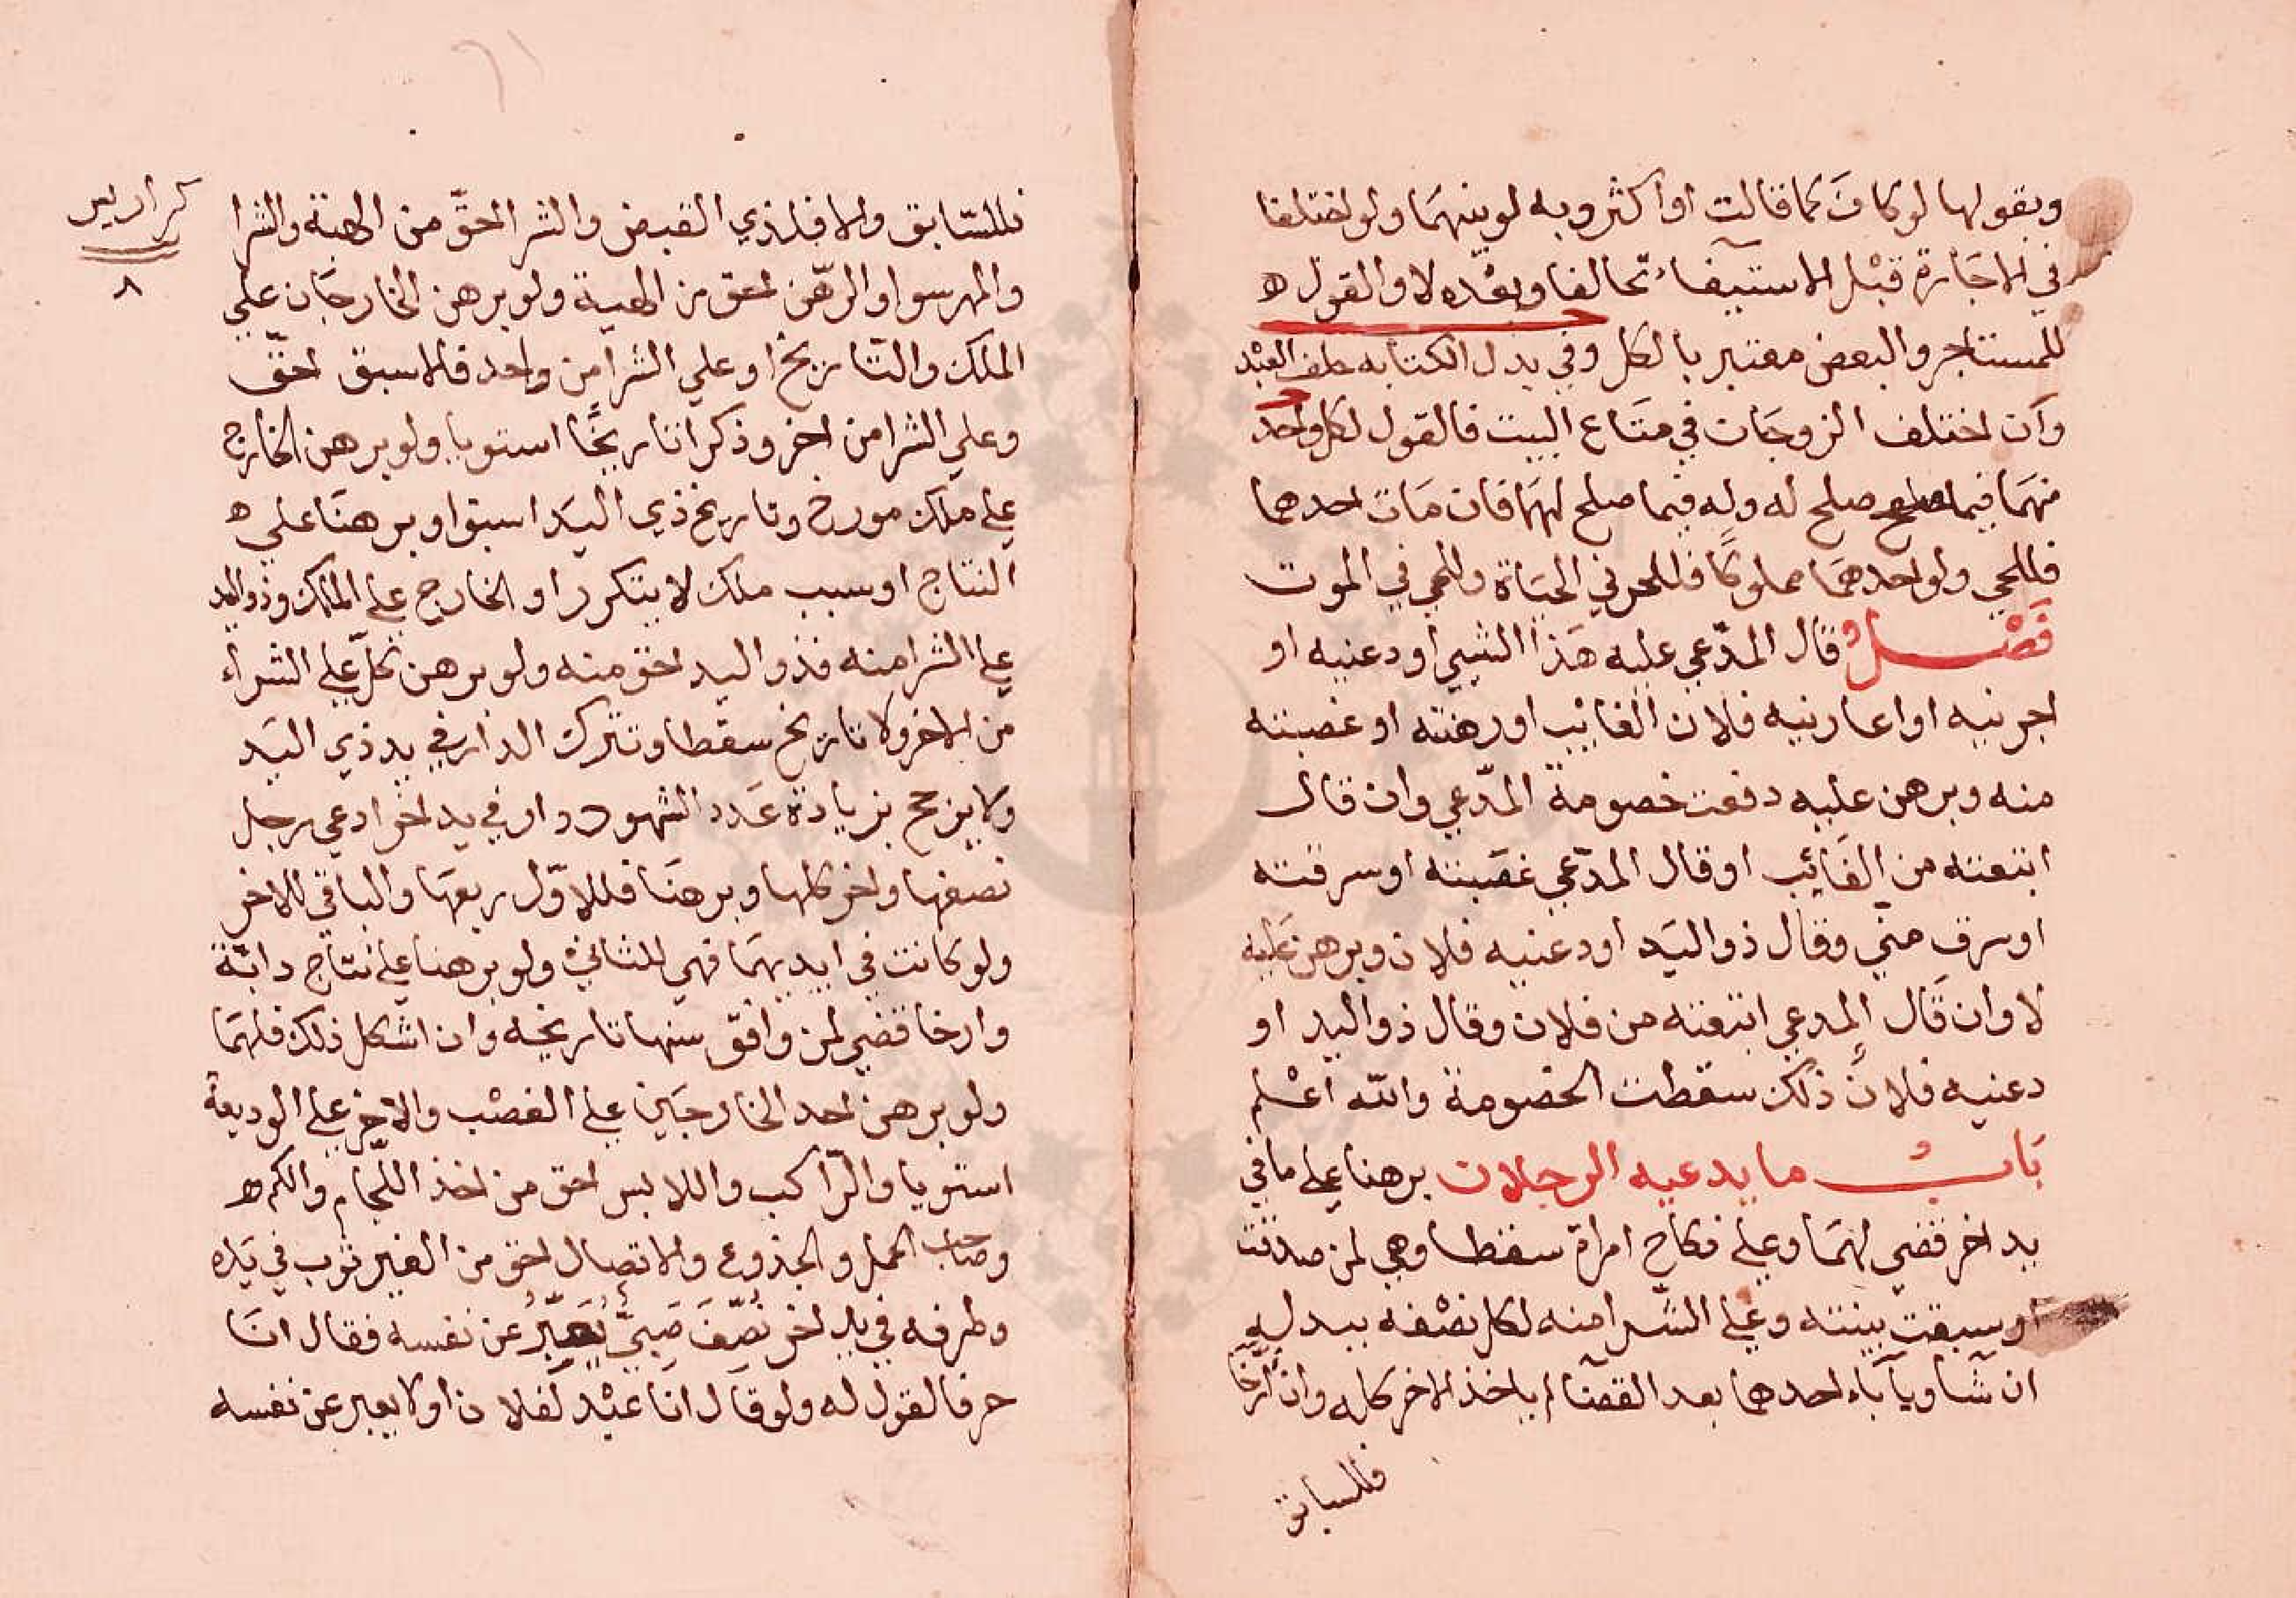 وبقولها لو كان كما قالت او اكثر وبه لو بينهما ولو اختلفا
في الاجارة قبْل الاستيفاء تحالفا وبعْده لا والقول ه
للمستاجر والبعض معتبر بالكل وفي بدل الكتابه حلف العبْد
وان اختلف الزوجان في متاع البيت فالقول لكل واحد
منهما فيما صلح له وله فيما صلح لهما فان مات احدهما
فللحي ولو احدهما مملوكًا فللحر في الحياة وللحي في الموت
فَصْلٌ قال المدّعي عليه هَذا الشيي اودعنيه او
اجرنيه او اعارنيه فلان الغايب او رهنته او غصبته
منه وبرهن عليه دفعت خصومة المدّعي وان قال
ابتعته من الغَائِب او قال المدّعي غصَبته او سرقته
او سرق منّي وقال ذو اليَد اودعنيه فلان وبرهن عَليه
لا وان قَال المدعي ابتعته من فلان وقال ذو اليد او
دعنيه فلانٌ ذلك سقطت الخصومة والله اعْلم
بَابٌ ما يدعيه الرجلان برهنا علي ما في
يد اخر قضي لهمَا وعلي نكاح امراة سقطا وهي لمن صدقت
او سبقت بينته وعلي الشّرا منه لكل نصْفه ببدله
ان شَاَ وبآباء احدهما بعد القضآ لم ياخذ الاخر كله وان ارّخا
فللسابق
فللسّابق والا فلذي القبض والشرا احقّ من الهبة والشرا
والمهر سوا والرّهن احق من الهبة ولو برهن الخارجَان علي
الملك والتّاريخ او علي الشرا من واحد فالاسبق احقّ
وعلي الشرا من اخر وذكرا تاريخًا استويا ولو برهن الخارج
علي ملك مورخ وتاريخ ذي اليَد اسبق او برهنَا علي ه
النتاج او سبب ملك لا يتكرر او الخارج علي الملك وذو اليد
علي الشرا منه فذو اليد احق منه ولو برهن كلّ علي الشراء
من الاخر ولا تاريخ سقطا وتترك الدار في يد ذي اليَد
ولا يرجح بزيادة عَدد الشهود دار في يد اخر ادعي رجل
نصفها واخر كلها وبرهنَا فللاوّل ربعهَا والباقي للاخر
ولو كانت في ايديهمَا فهي للثاني ولو برهنا علي نتاج دابّة
وارخا قضي لمن وافق سنها تاريخه وان اشكل ذلك فلهمَا
ولو برهن احد الخارجَين علي الغصْب والاخر علي الوديعة
استويا والرّاكب واللابس احق من اخذ اللّجام والكم ه
وصاحب الحمل والجذوع والاتصال احق من الغير ثوب في يَده
وطرفه في يد اخر نُصّفَ صَبيٌّ يُعَبِّرُ عن نفسه فقال انَا
حر فالقول له ولو قَال انا عبْد لفلان او لا يعبر عن نفسه
كراريس
٨